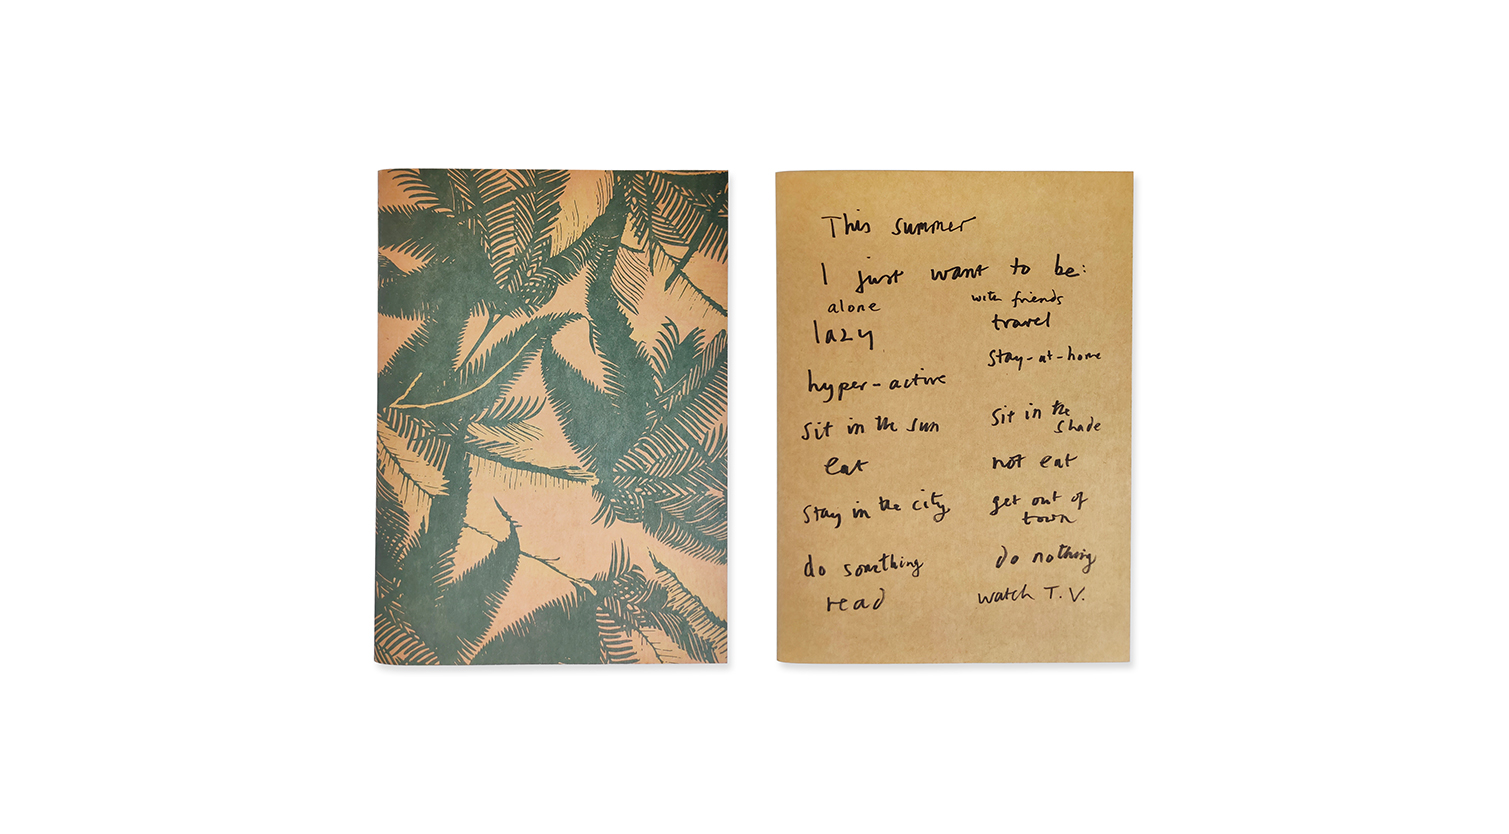 This summer
I just want to be:
alone with friends
lazy travel
stay-at-home
hyper-active
sit in the sun sit in the
shade
eat not eat
stay in the city get out of
town
do something do nothing
read watch T.V.